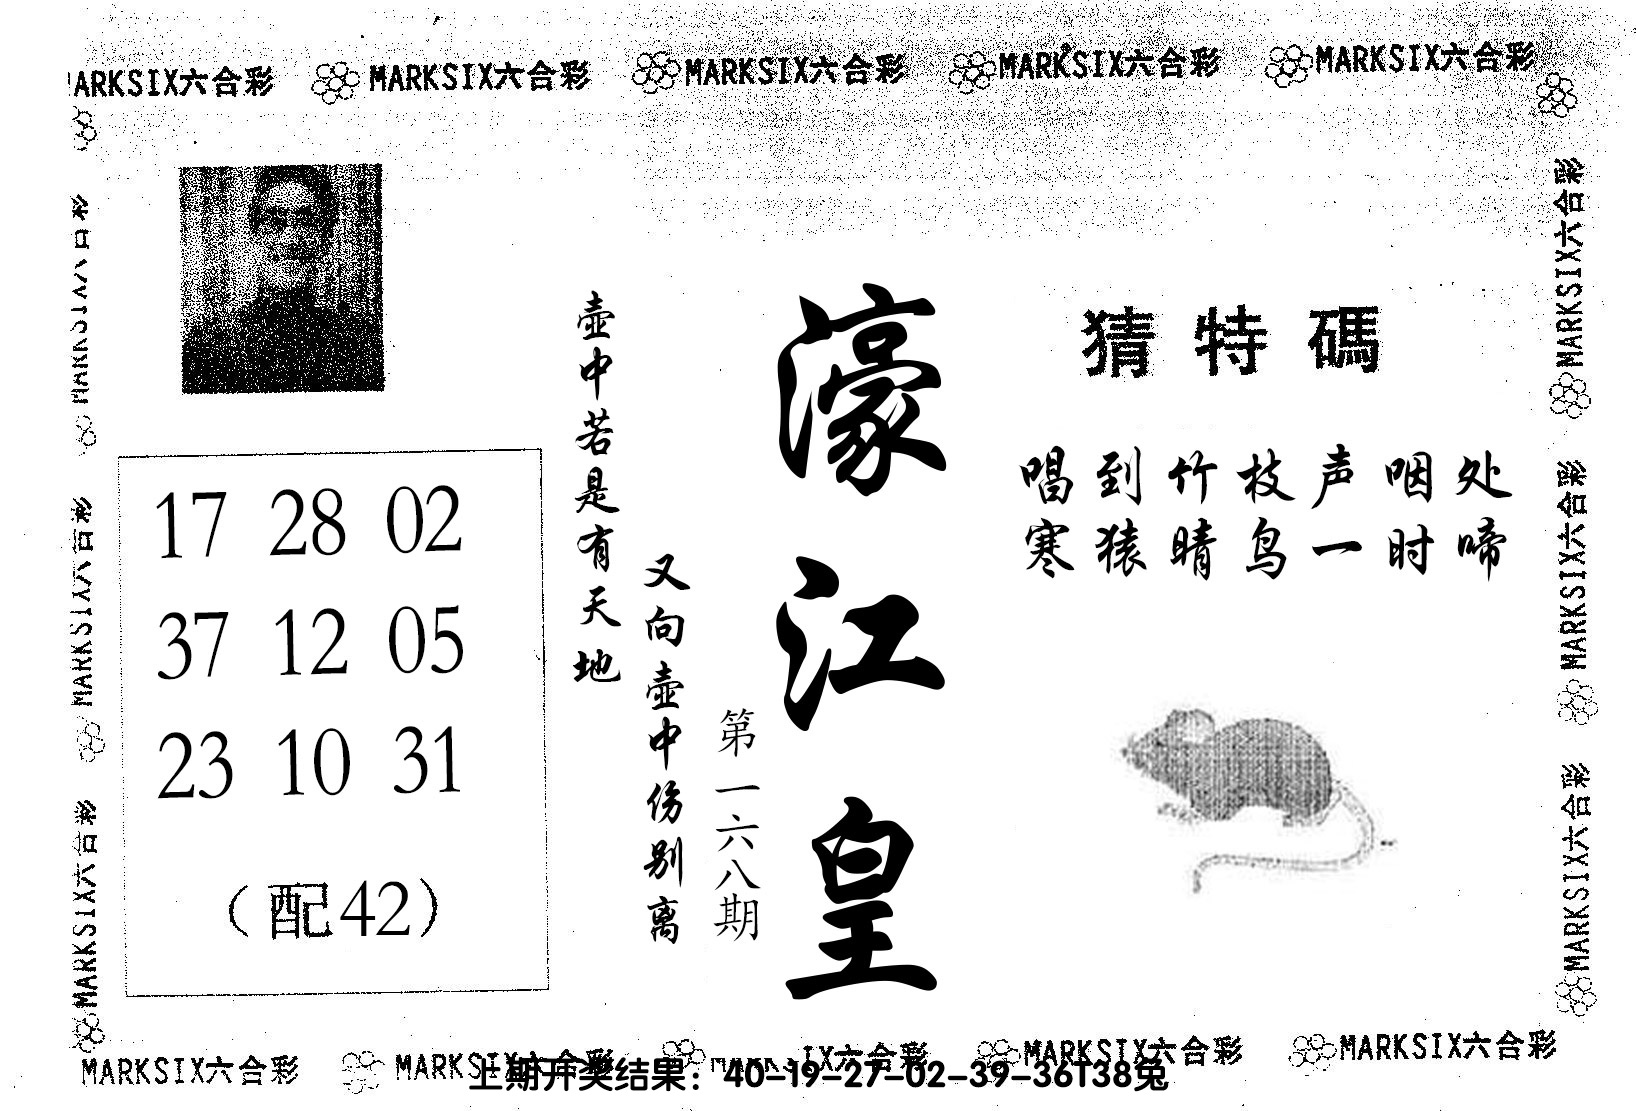 MARKSIX六合彩 MARKSIX六合彩 MARKSIX六合彩 MARKSIX六合彩 MARKSIX六合彩
MARKSIX六合彩
MARKSIX六合彩
MARKSIX六合彩
17 28 02
37 12 05
23 10 31
(配42)
壶中若是有天地
又向壶中伤别离
第一六八期
濠江皇
猜特碼
唱到竹枝声咽处
寒猿晴鸟一时啼
MARKSIX六合彩
MARKSIX六合彩
MARKSIX六合彩
MARKSIX六合彩 MARKSIX六合彩 MARKSIX六合彩 MARKSIX六合彩 MARKSIX六合彩
上期开奖结果：40-19-27-02-39-36T38兔